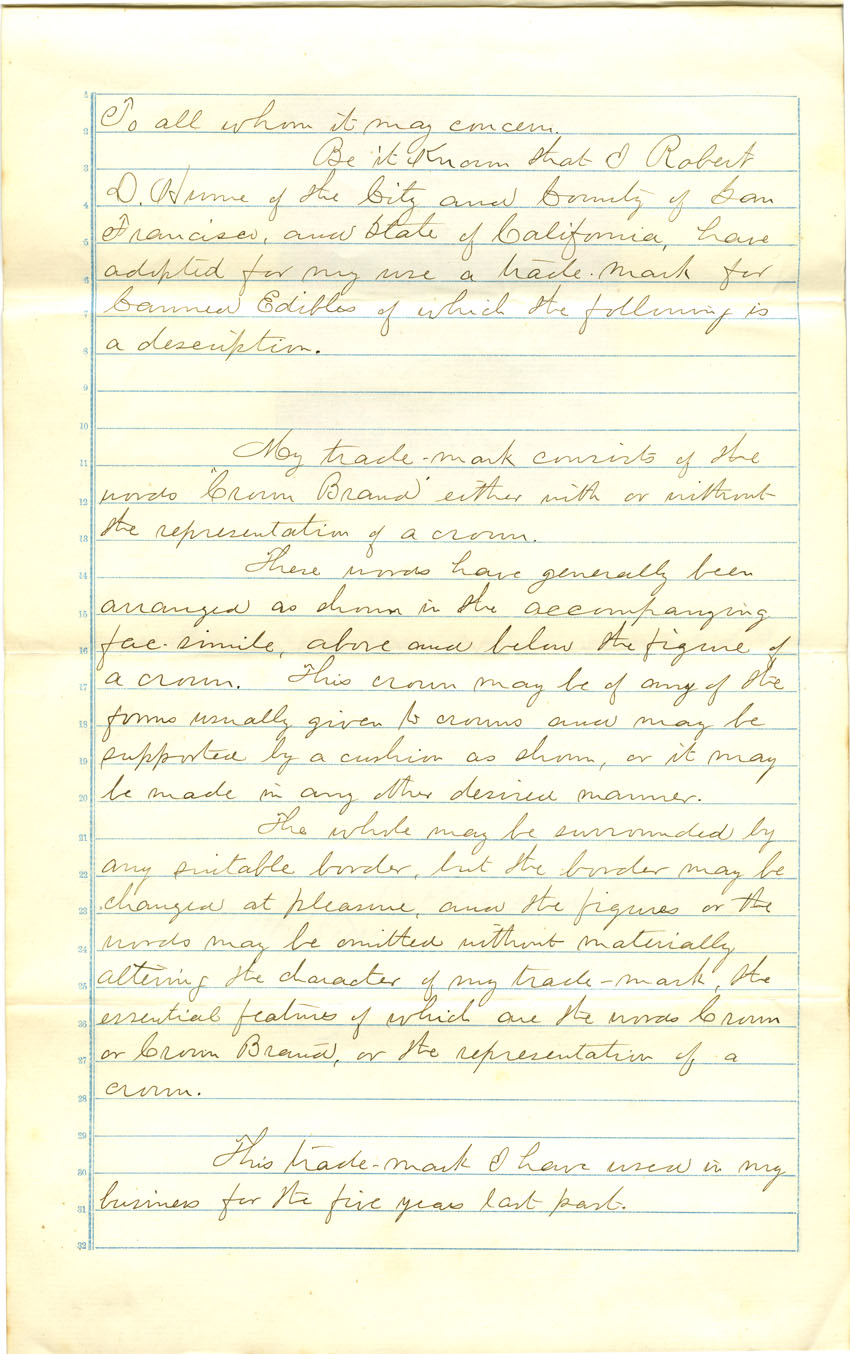 To all whom it may concern.
Be it Known that I Robert
D. Hume of the City and County of San
Francisco, and State of California, have
adopted for my use a trade-mark for
Canned Edibles of which the following is
a description.
My trade-mark consists of the
words "Crown Brand" either with or without
the representation of a crown.
These words have generally been
arranged as shown in the accompanying
fac-simile, above and below the figure of
a crown. This crown may be of any of the
forms usually given to crowns and may be
supported by a cushion as shown, or it may
be made in any other desired manner.
The whole may be surrounded by
any suitable border, but the border may be
changed at pleasure, and the figures or the
words may be omitted without materially
altering the character of my trade-mark, the
essential features of which are the words Crown
or Crown Brand, or the representation of a
crown.
This trade-mark I have used in my
business for the five years last past.
1
2
3
4
5
6
7
8
9
10
11
12
13
14
15
16
17
18
19
20
21
22
23
24
25
26
27
28
29
30
31
32